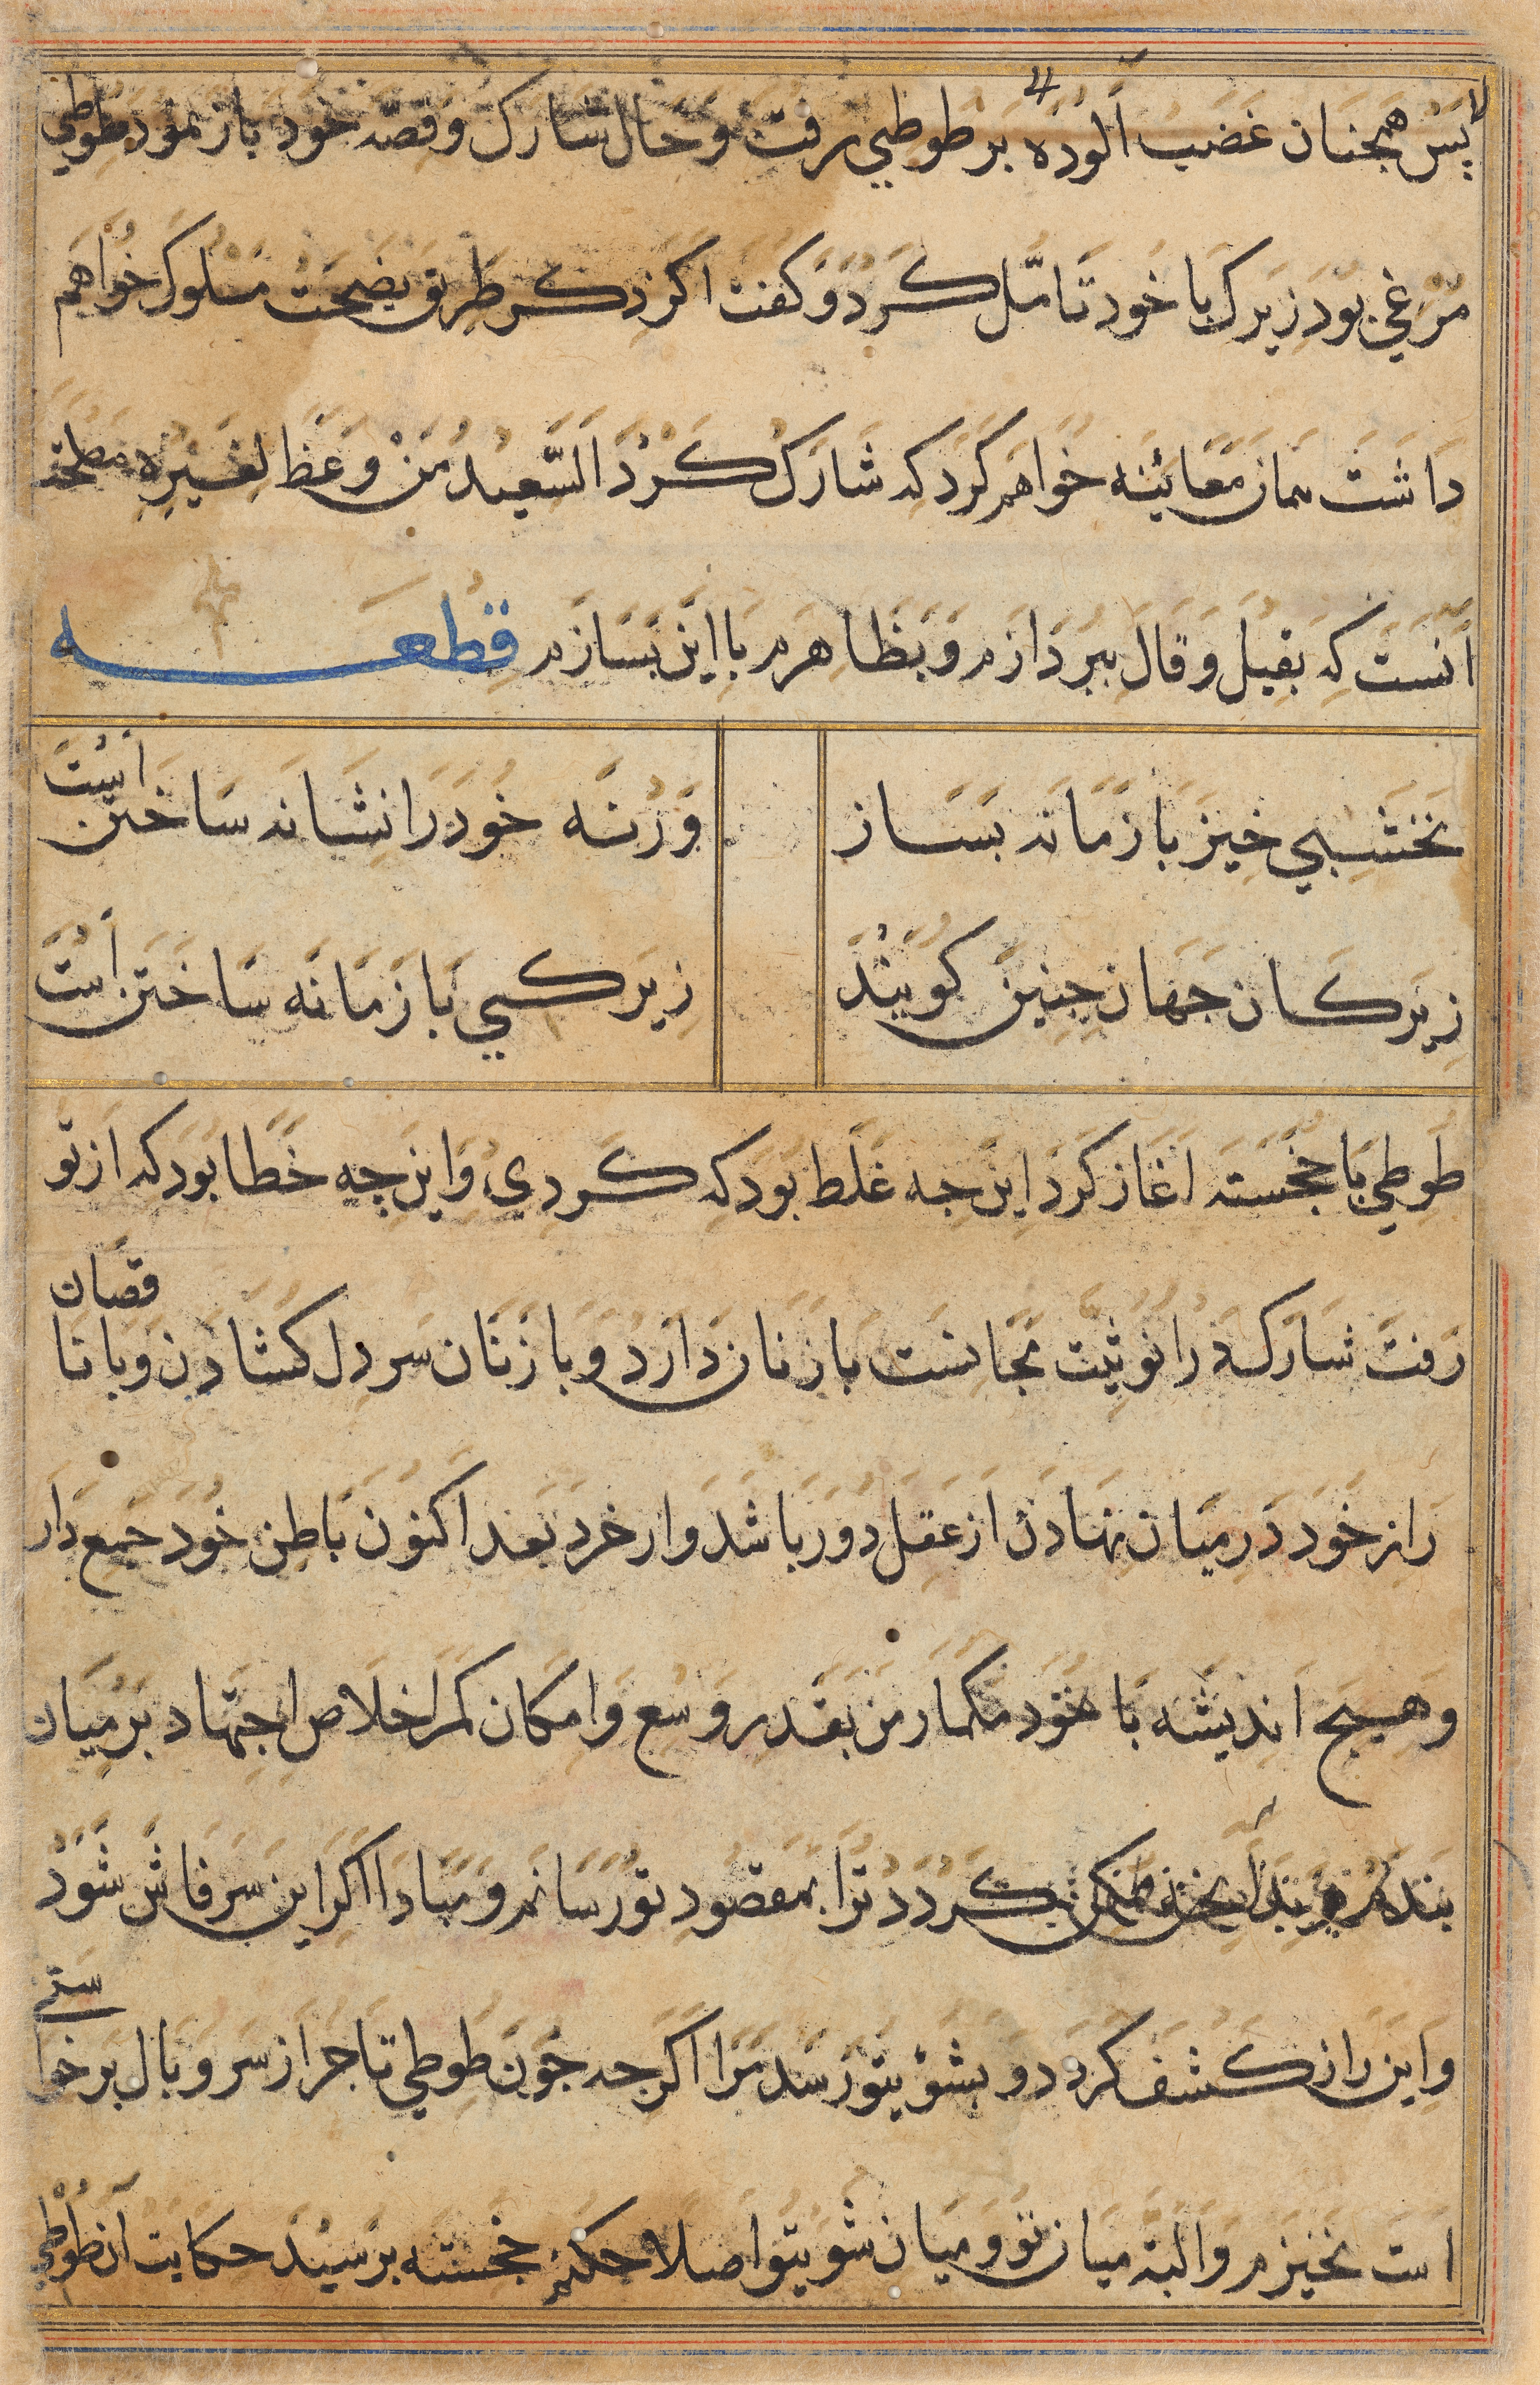 پس همجنان غضب آلوده بر طوطي رفت و حال شارک و قصه خود باز نمود طوطي
مرغي بود زیرک با خود تامل کرد و کفت اکر ذکر طریق نصیحت مسلوک خواهم
داشت همان معائینه خواهم کرد که شارک کرد السعید من وعظ لغیره مصلحة
آنست که بقیل و قال بپردازم و بظاهرم با این بسازم قطعه
نخشبي خیز با زمانه بساز
ورنه خود را نشانه ساختن است
زیرکان جهان چنین کویند
زیرکي با زمانه ساختن است
طوطي با خجسته اغاز کرد این چه غلط بود که کردي و این چه خطا بود که از تو
رفت شارک را نوثیت مجانست با زنان دارد و با زنان سر دل کشادن و با ناقصان
راز خود در میان نهادن از عقل دور باشد و از خرد بعد اکنون باطن خود جمع دار
و هیج اندیشه با خود مکمار من بقدر وسع و امکان کمر اخلاص اجتهاد بر میان
بندم کردد ترا بمقصود تو رسانم و مبادا اکر این سر فاش شود
و این راز کشف کردد و بشوي تو رسد مرا اکرچه چون طوطي تاجر از سر و بال بر خواستے
است نخیزم و البته میان تو و میان شوي تو اصلاح کنم خجسته پرسید حکایت آن طوطي